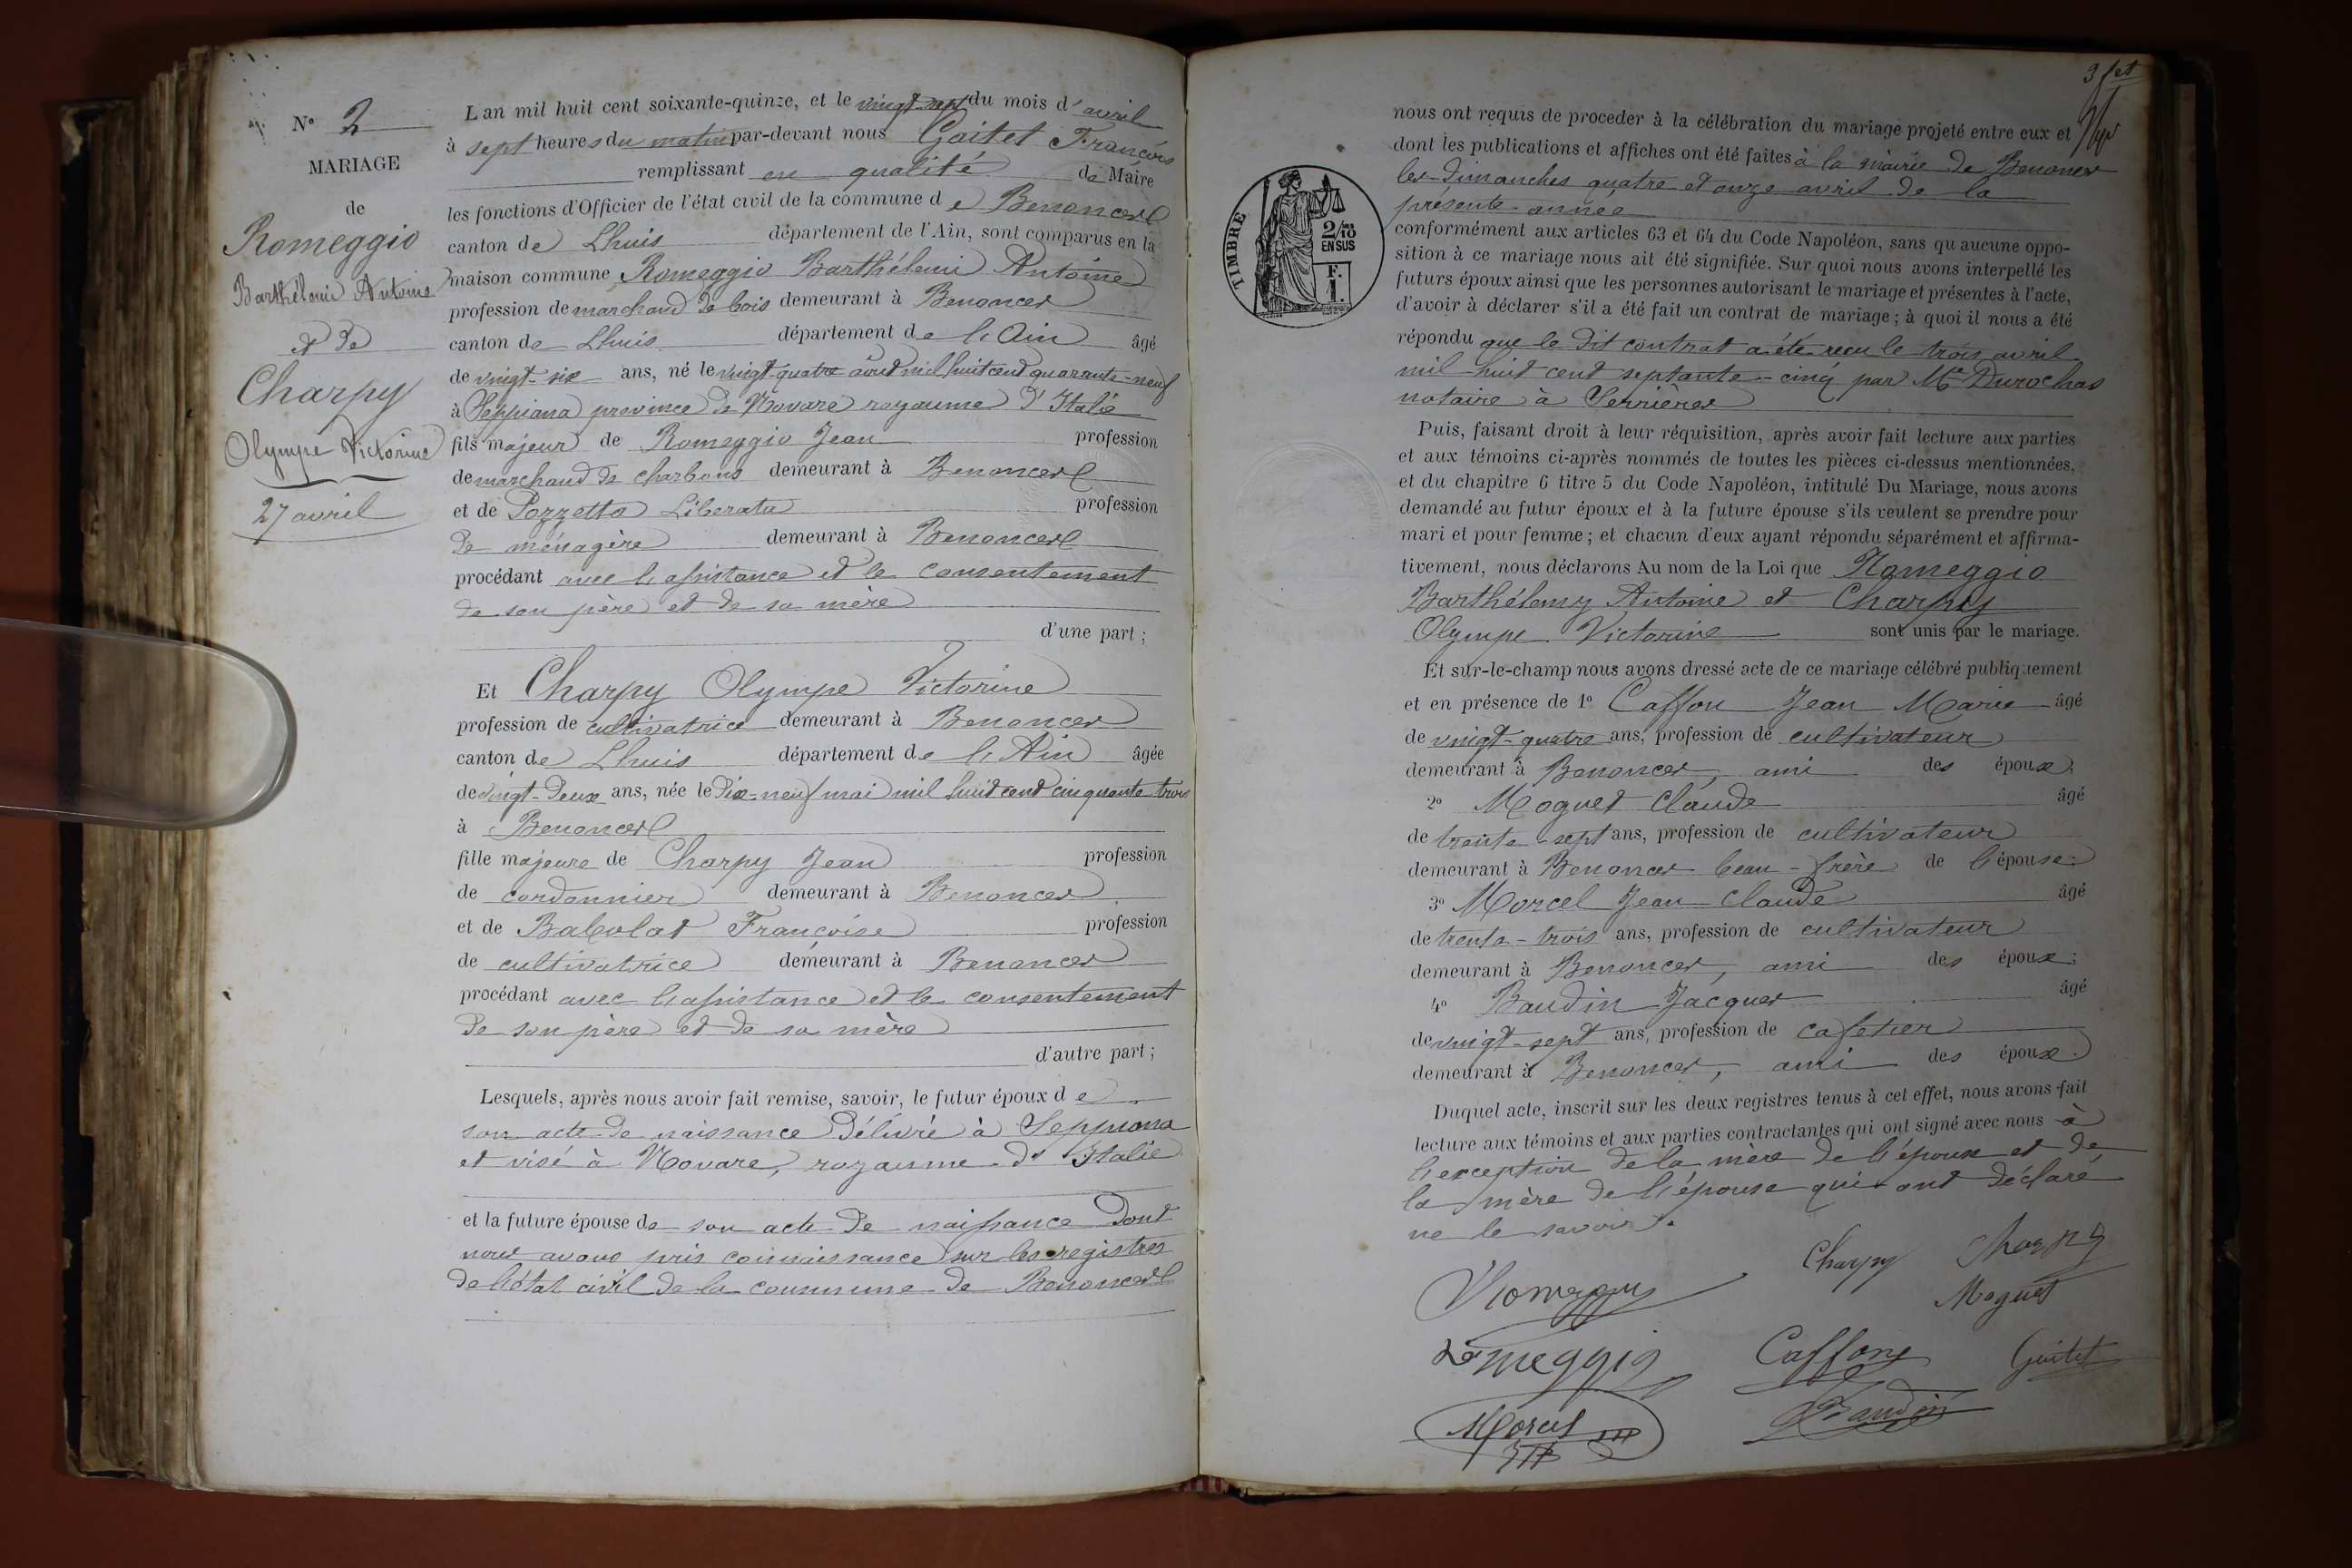 N° 2
MARIAGE
de
Romeggio
Barthélemi Antoine
et de
Charpy
Olympe Victorine
27 avril
L'an mil huit cent soixante-quinze, et le vingt-sept du mois d'avril
à sept heures du matin par-devant nous Gaitet François
remplissant en qualité de Maire
les fonctions d'Officier de l'état civil de la commune de Benonces
canton de Lhuis département de l'Ain, sont comparus en la
maison commune Romeggio Barthélemi Antoine
profession de marchand de bois demeurant à Benonces
canton de Lhuis département de l'Ain âgé
de vingt-six ans, né le vingt-quatre août mil huit cent quarante-neuf
à Seppiana province de Novare royaume d'Italie
fils majeur de Romeggio Jean profession
de marchand de charbons demeurant à Benonces
et de Pozzetta Liberata profession
de ménagère demeurant à Benonces
procédant avec l'assistance et le consentement
de son père et de sa mère
d'une part ;
Et Charpy Olympe Victorine
profession de cultivatrice demeurant à Benonces
canton de Lhuis département de l'Ain âgée
de vingt-deux ans, née le dix-neuf mai mil huit cent cinquante trois
à Benonces
fille majeure de Charpy Jean profession
de cordonnier demeurant à Benonces
et de Babolat Françoise profession
de cultivatrice demeurant à Benonces
procédant avec l'assistance et le consentement
de son père et de sa mère
d'autre part ;
Lesquels, après nous avoir fait remise, savoir, le futur époux de
son acte de naissance délivré à Seppiona
et visé à Novare, royaume d'Italie
et la future épouse de son acte de naissance dont
nous avons pris connaissance sur les registres
de l'état civil de la commune de Benonces
nous ont requis de proceder à la célébration du mariage projeté entre eux et
dont les publications et affiches ont été faites à la mairie de Benonces
les dimanches quatre et onze avril de la
présente année
TIMBRE
2/10
EN SUS
F.
1.
conformément aux articles 63 et 64 du Code Napoléon, sans qu'aucune oppo-
sition à ce mariage nous ait été signifiée. Sur quoi nous avons interpellé les
futurs époux ainsi que les personnes autorisant le mariage et présentes à l'acte,
d'avoir à déclarer s'il a été fait un contrat de mariage ; à quoi il nous a été
répondu que le dit contrat a été reçu le trois avril
mil huit cent septante-cinq par Me Durochas
notaire à Serrieres
Puis, faisant droit à leur réquisition, après avoir fait lecture aux parties
et aux témoins ci-après nommés de toutes les pièces ci-dessus mentionnées,
et du chapitre 6 titre 5 du Code Napoléon, intitulé Du Mariage, nous avons
demandé au futur époux et à la future épouse s'ils veulent se prendre pour
mari et pour femme ; et chacun d'eux ayant répondu séparément et affirma-
tivement, nous déclarons Au nom de la Loi que Romeggio
Barthélemy Antoine et Charpy
Olympe Victorine sont unis par le mariage.
Et sur-le-champ nous avons dressé acte de ce mariage célébré publiquement
et en présence de 1° Caffon Jean Marie âgé
de vingt-quatre ans, profession de cultivateur
demeurant à Benonces, ami des époux;
2° Moguet Claude âgé
de trente-sept ans, profession de cultivateur
demeurant à Benonces beau-frère de l'épouse;
3° Morcel Jean Claude âgé
de trente-trois ans, profession de cultivateur
demeurant à Benonces, ami des époux;
4° Baudin Jacques âgé
de vingt-sept ans, profession de cafetier
demeurant à Benonces, ami des époux.
Duquel acte, inscrit sur les deux registres tenus à cet effet, nous avons fait
lecture aux témoins et aux parties contractantes qui ont signé avec nous à
l'exception de la mère de l'époux et de
la mère de l'épouse qui ont déclaré
ne le savoir.
Charpy Charpy
Moguet
Romeggio Caffon Gaitet
Morcel Baudin